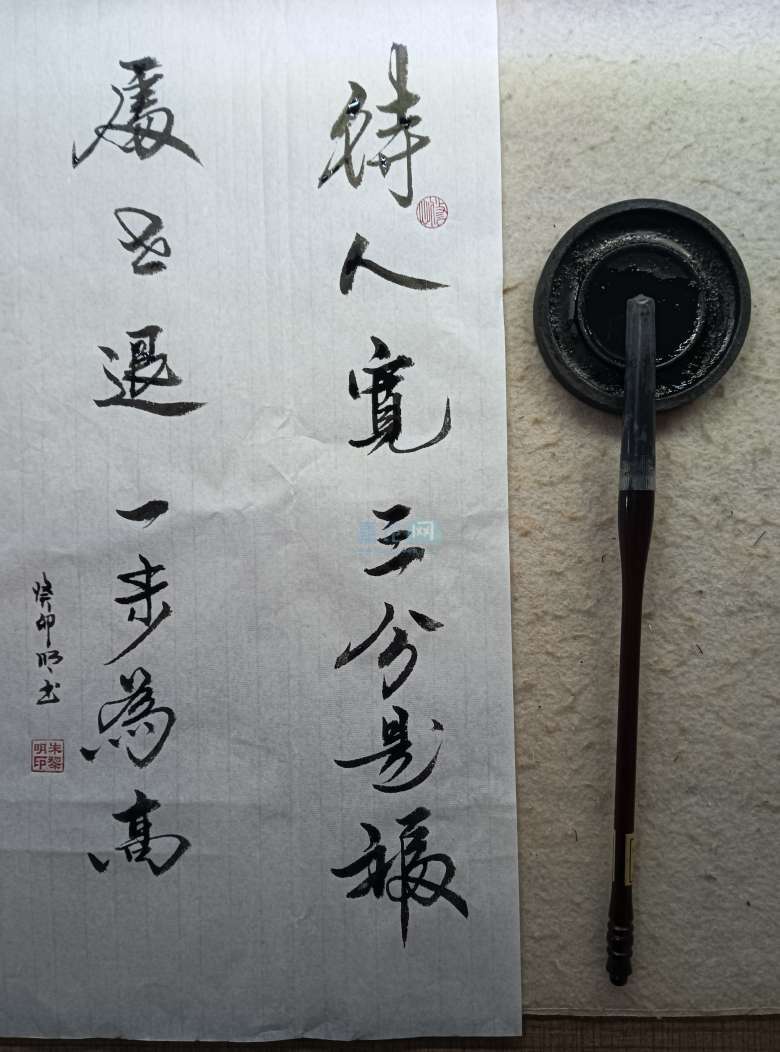 待人寬三分是福
處世退一步為高
癸卯 明 书
朱黎明印